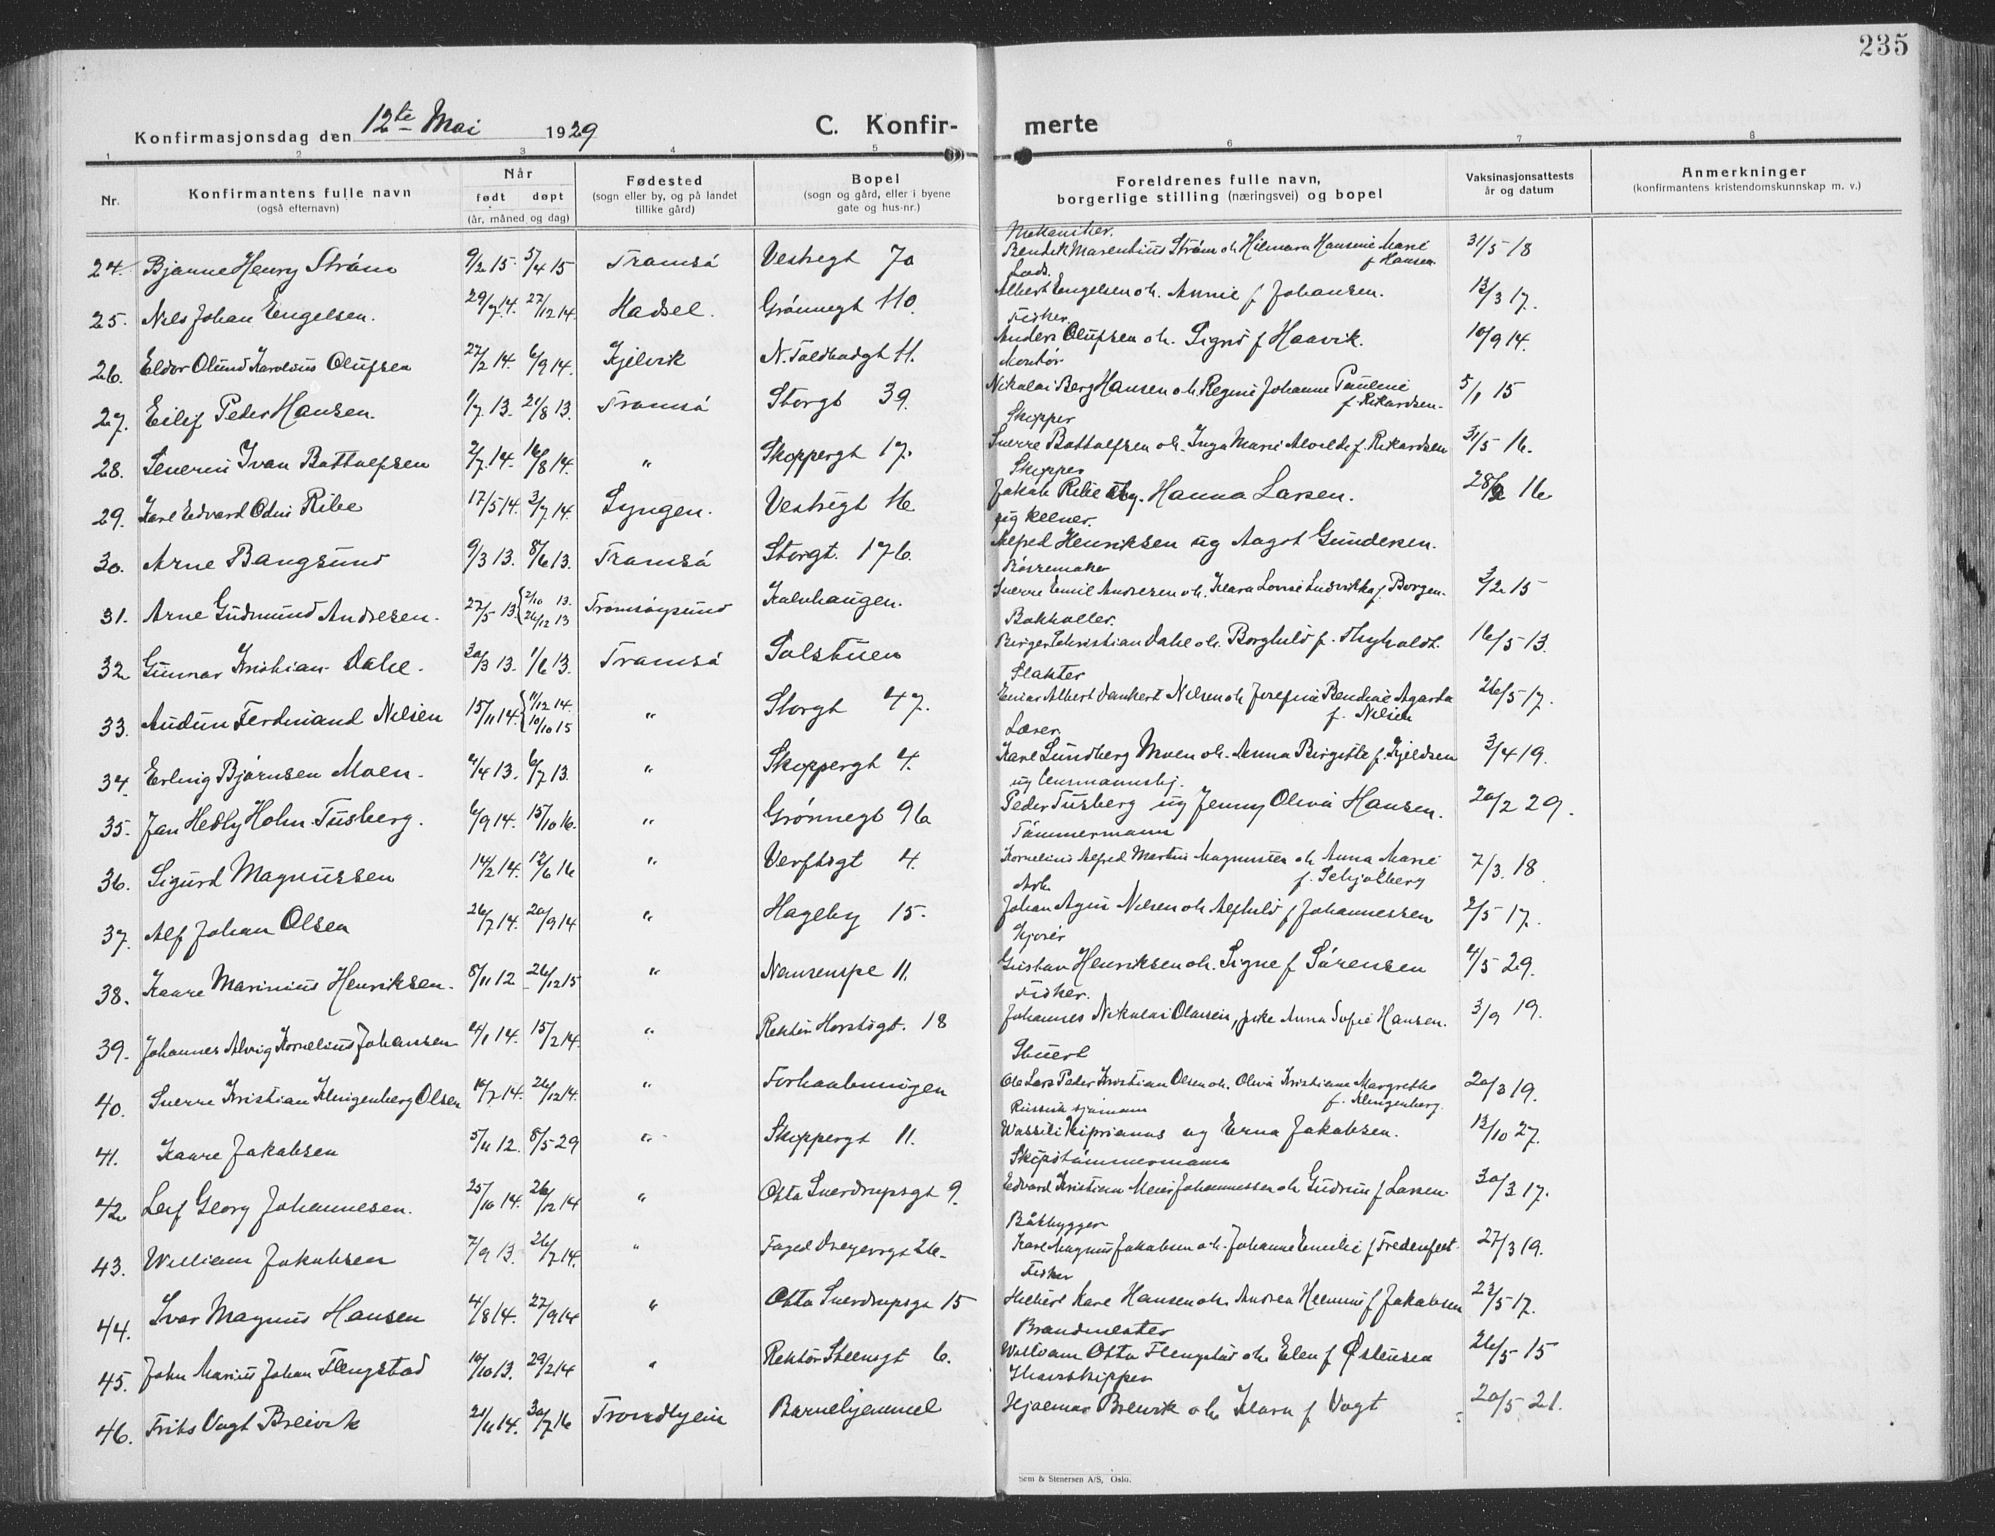 235
Konfirmasjonsdag den 12te Mai 1929
C. Konfir- merte
1 2 3 4 5 6 7 8
Nr.
Konfirmantens fulle navn
(også efternavn)
Når
født døpt
(år, måned og dag)
Fødested
(sogn eller by, og på landet
tillike gård)
Bopel
(sogn og gård, eller i byene
gate og hus-nr.)
Foreldrenes fulle navn,
borgerlige stilling (næringsvei) og bopel
Vaksinasjonsattests
år og datum
Anmerkninger
(konfirmantens kristendomskunnskap m. v.)
Mekaniker.
24. Bjarne Henry Strøm 9/2 15. 5/4 15 Tromsø Vestregt 70 Bendik Marentius Strøm o h. Hilmara Hansine Marie f Hansen 31/5 18
Lods.
25. Nils Johan Engelsen. 29/7 14. 27/12 14. Hadsel. Grønnegt 110. Albert Engelsen o h. Annie f Johansen. 13/3 17.
Fisker.
26. Eldor Olund Karolius Olufsen 27/2 14. 6/9 14. Kjelvik N. Toldbodgt 11. Anders Olufsen o h. Signe f Haavik. 10/9 14.
Montør
27. Eilif Peder Hansen. 1/7 13. 21/8 13. Tromsø Storgt 39. Nikolai Berg Hansen o h. Regine Johanne Pauline f. Rikardsen. 5/1 15
Skipper
28. Severin Ivan Bottolfsen 2/7 14. 16/8 14. " Skippergt 17. Sverre Bottolfsen o h. Inga Marie Alvilde f. Rikardsen 31/5 16.
Skipper
29. Karl Edvard Odin Ribe 17/5 14. 3/7 14. Lyngen. Vestregt 16 Jakob Ribe Hanna Larsen. 16
ug kelner.
30. Arne Bangsund 9/3 13. 8/6 13. Tromsø Storgt. 176. Alfred Henriksen ug Aagot Gundersen.
Bøssemaker
31. Arne Gudmund Andresen. 27/5 13. { 2/10 13. 26/12 13 Tromsøysund Kalvhaugen. Sverre Emil Andresen o h. Klara Lovise Ludvikka f. Borgen. 3/2 15
Bokholler.
32. Gunnar Kristian Dahl. 30/3 13. 1/6 13. Tromsø Solstuen Birger Christian Dahl o h. Borghild f. Thyholdt. 16/5 13.
Slakter
33. Audun Ferdinand Nilsen 15/11 14. { 11/12 14. 10/10 15 " Storgt 47. Einar Albert Dankert Nilsen o h. Josefine Bendine Agarda f. Nilsen 26/5 17.
Lærer.
34. Erling Bjørnsen Moen. 4/4 13. 6/7 13. " Skippergt 4. Karl Lundberg Moen o h. Anna Birgitte f. Kjeldsen 3/4 19.
ug Lensmannsbtj.
35. Jan Hedly Holm Tusberg. 6/9 14. 15/10 16. " Grønnegt 96 Peder Tusberg ug Jenny Oliva Hansen. 20/2 29.
Tømmermann
36. Sigurd Magnussen 14/2 14. 12/6 16 " Verftsgt 4. Kornelius Alfred Martin Magnussen o h. Anna Marie f. Schjølberg 7/3. 18.
Arb.
37. Alf Johan Olsen 26/7 14. 20/9 14 " Hageby 15. Johan Agin Nilsen o h. Alfhild f Johannessen 2/5 17.
Kjører
38. Kaare Marinius Henriksen. 8/11 12 26/12 15 " Nansenspl 11. Gustav Henriksen o h. Signe f Sørensen 4/5 29.
Fisker.
39. Johannes Alvig Kornelius Johansen 4/1 14. 15/2 14. " Rektor Horstsgt. 18 Johannes Nikolai Olausen, pike Anna Sofie Hansen. 3/9 19.
Stuert
40. Sverre Kristian Klingenberg Olsen 14/7 14. 26/12 14. " Forhaabningen Ole Lars Peder Kristian Olsen o h. Oliva Kristiane Margrethe f. Klingenberg. 20/3 19.
Russisk sjømann
41. Kaare Jakobsen 5/11 12. 8/5 29 " Skippergt 11. Wassili Kiprianus ug Erna Jakobsen. 13/10 27.
Skipstømmermann
42. Leif Georg Johannesen. 25/10 14. 26/12 14 " Otto Sverdrupsgt 9. Edvard Kristian Meier Johannessen o h. Gudrun f Larsen 30/3 17.
Båtbygger
43. William Jakobsen 7/9 13. 26/7 14. " 26. Karl Magnus Jakobsen o h. Johanne Emilie f Fredenfeldt 27/3 19.
Fisker
44. Ivar Magnus Hansen 4/8 14. 27/9 14 " Otto Sverdrupsgt 15 Hilbert Karl Hansen o h. Andrea Hermine f Jakobsen 22/5 17.
Brandmester
45. John Marius Johan Flengstad 10/10 13. 29/2 14 " Rektor Steensgt 6. William Otto Flengstad o h. Elen f Østensen 26/5 15
Havskipper
46. Frits Vogt Breivik 21/11 14. 30/7 16 Trondhjem Barnehjemmet Hjalmar Breivik o h. Klara f Vogt 20/5 21.
Sem & Stenersen A/S, Oslo.